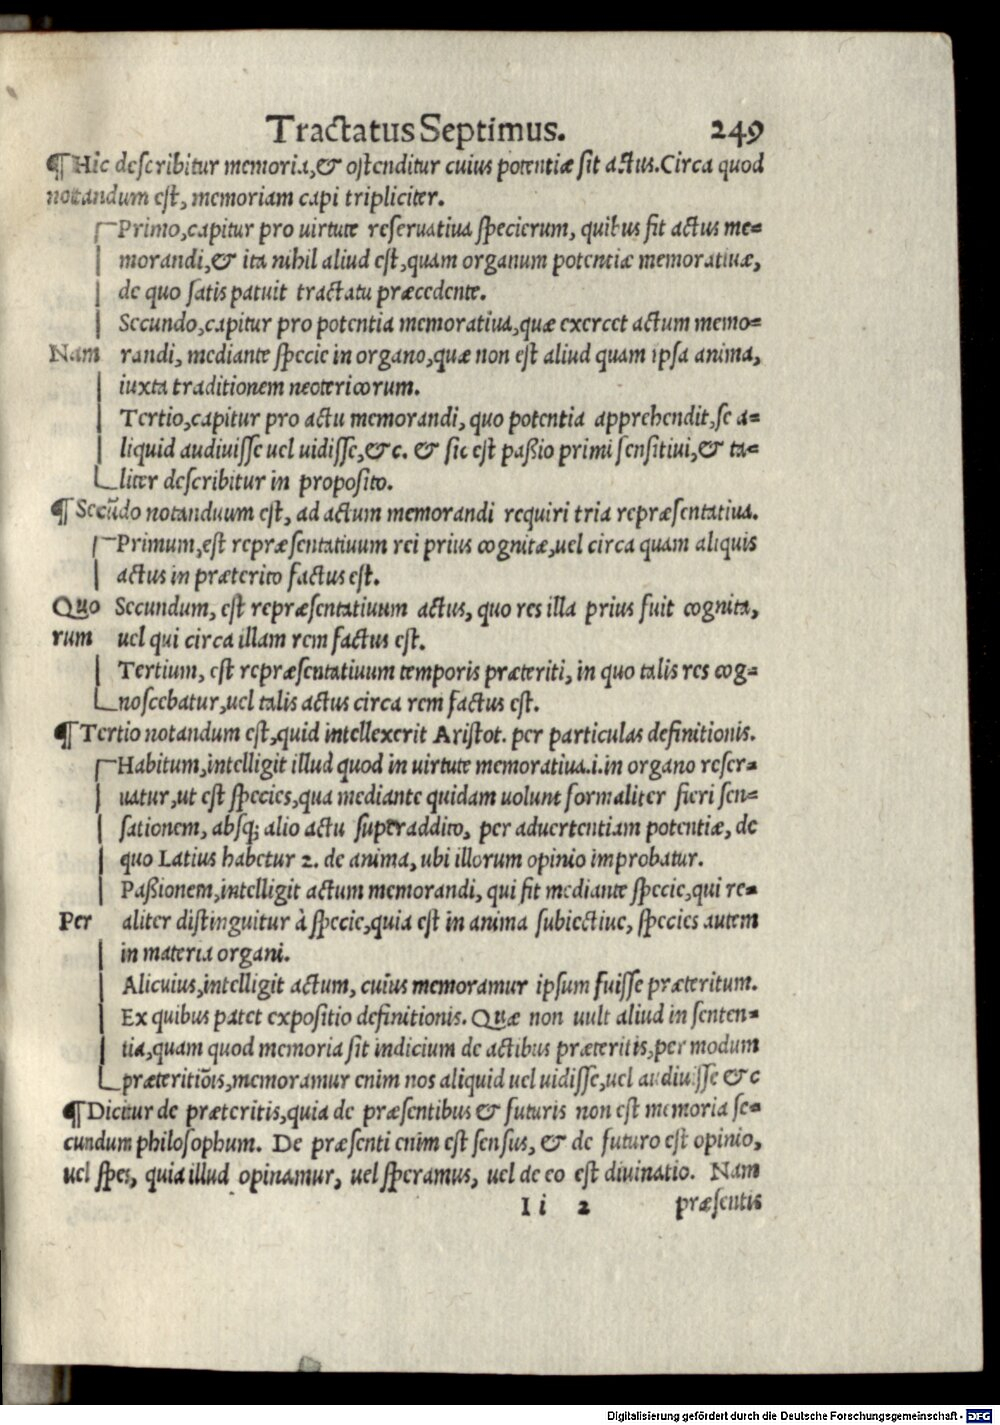 Tractatus Septimus. 249
¶ Hic describitur memoria, & ostenditur cuius potentiæ sit actus. Circa quod
notandum est, memoriam capi tripliciter.
Primo, capitur pro uirtute reseruatiua specierum, quibus fit actus me=
morandi, & ita nihil aliud est, quam organum potentiæ memoratiuæ,
de quo satis patuit tractatu præcedente.
Secundo, capitur pro potentia memoratiua, quæ exercet actum memo=
Nam randi, mediante specie in organo, quæ non est aliud quam ipsa anima,
iuxta traditionem neotericorum.
Tertio, capitur pro actu memorandi, quo potentia apprehendit, se a=
liquid audiuisse uel uidisse, &c. & sic est paßio primi sensitiui, & ta=
liter describitur in proposito.
¶ Secūdo notanduum est, ad actum memorandi requiri tria repræsentatiua.
Primum, est repræsentatiuum rei prius cognitæ, uel circa quam aliquis
actus in præterito factus est.
Quo Secundum, est repræsentatiuum actus, quo res illa prius fuit cognita,
rum uel qui circa illam rem factus est.
Tertium, est repræsentatiuum temporis præteriti, in quo talis res cog=
noscebatur, uel talis actus circa rem factus est.
¶ Tertio notandum est, quid intellexerit Aristot. per particulas definitionis.
Habitum, intelligit illud quod in uirtute memoratiua .i. in organo reser=
uatur, ut est species, qua mediante quidam uolunt formaliter fieri sen=
sationem, absq; alio actu superaddito, per aduertentiam potentiæ, de
quo Latius habetur 2. de anima, ubi illorum opinio improbatur.
Paßionem, intelligit actum memorandi, qui fit mediante specie, qui re=
Per aliter distinguitur à specie, quia est in anima subiectiue, species autem
in materia organi.
Alicuius, intelligit actum, cuius memoramur ipsum fuisse præteritum.
Ex quibus patet expositio definitionis. Quæ non uult aliud in senten=
tia, quam quod memoria sit indicium de actibus præteritis, per modum
præteritiōis, memoramur enim nos aliquid uel uidisse, uel audiuisse &c
¶ Dicitur de præteritis, quia de præsentibus & futuris non est memoria se=
cundum philosophum. De præsenti enim est sensus, & de futuro est opinio,
uel spes, quia illud opinamur, uel speramus, uel de eo est diuinatio. Nam
Ii 2 præsentis
Digitalisierung gefördert durch die Deutsche Forschungsgemeinschaft - DFG